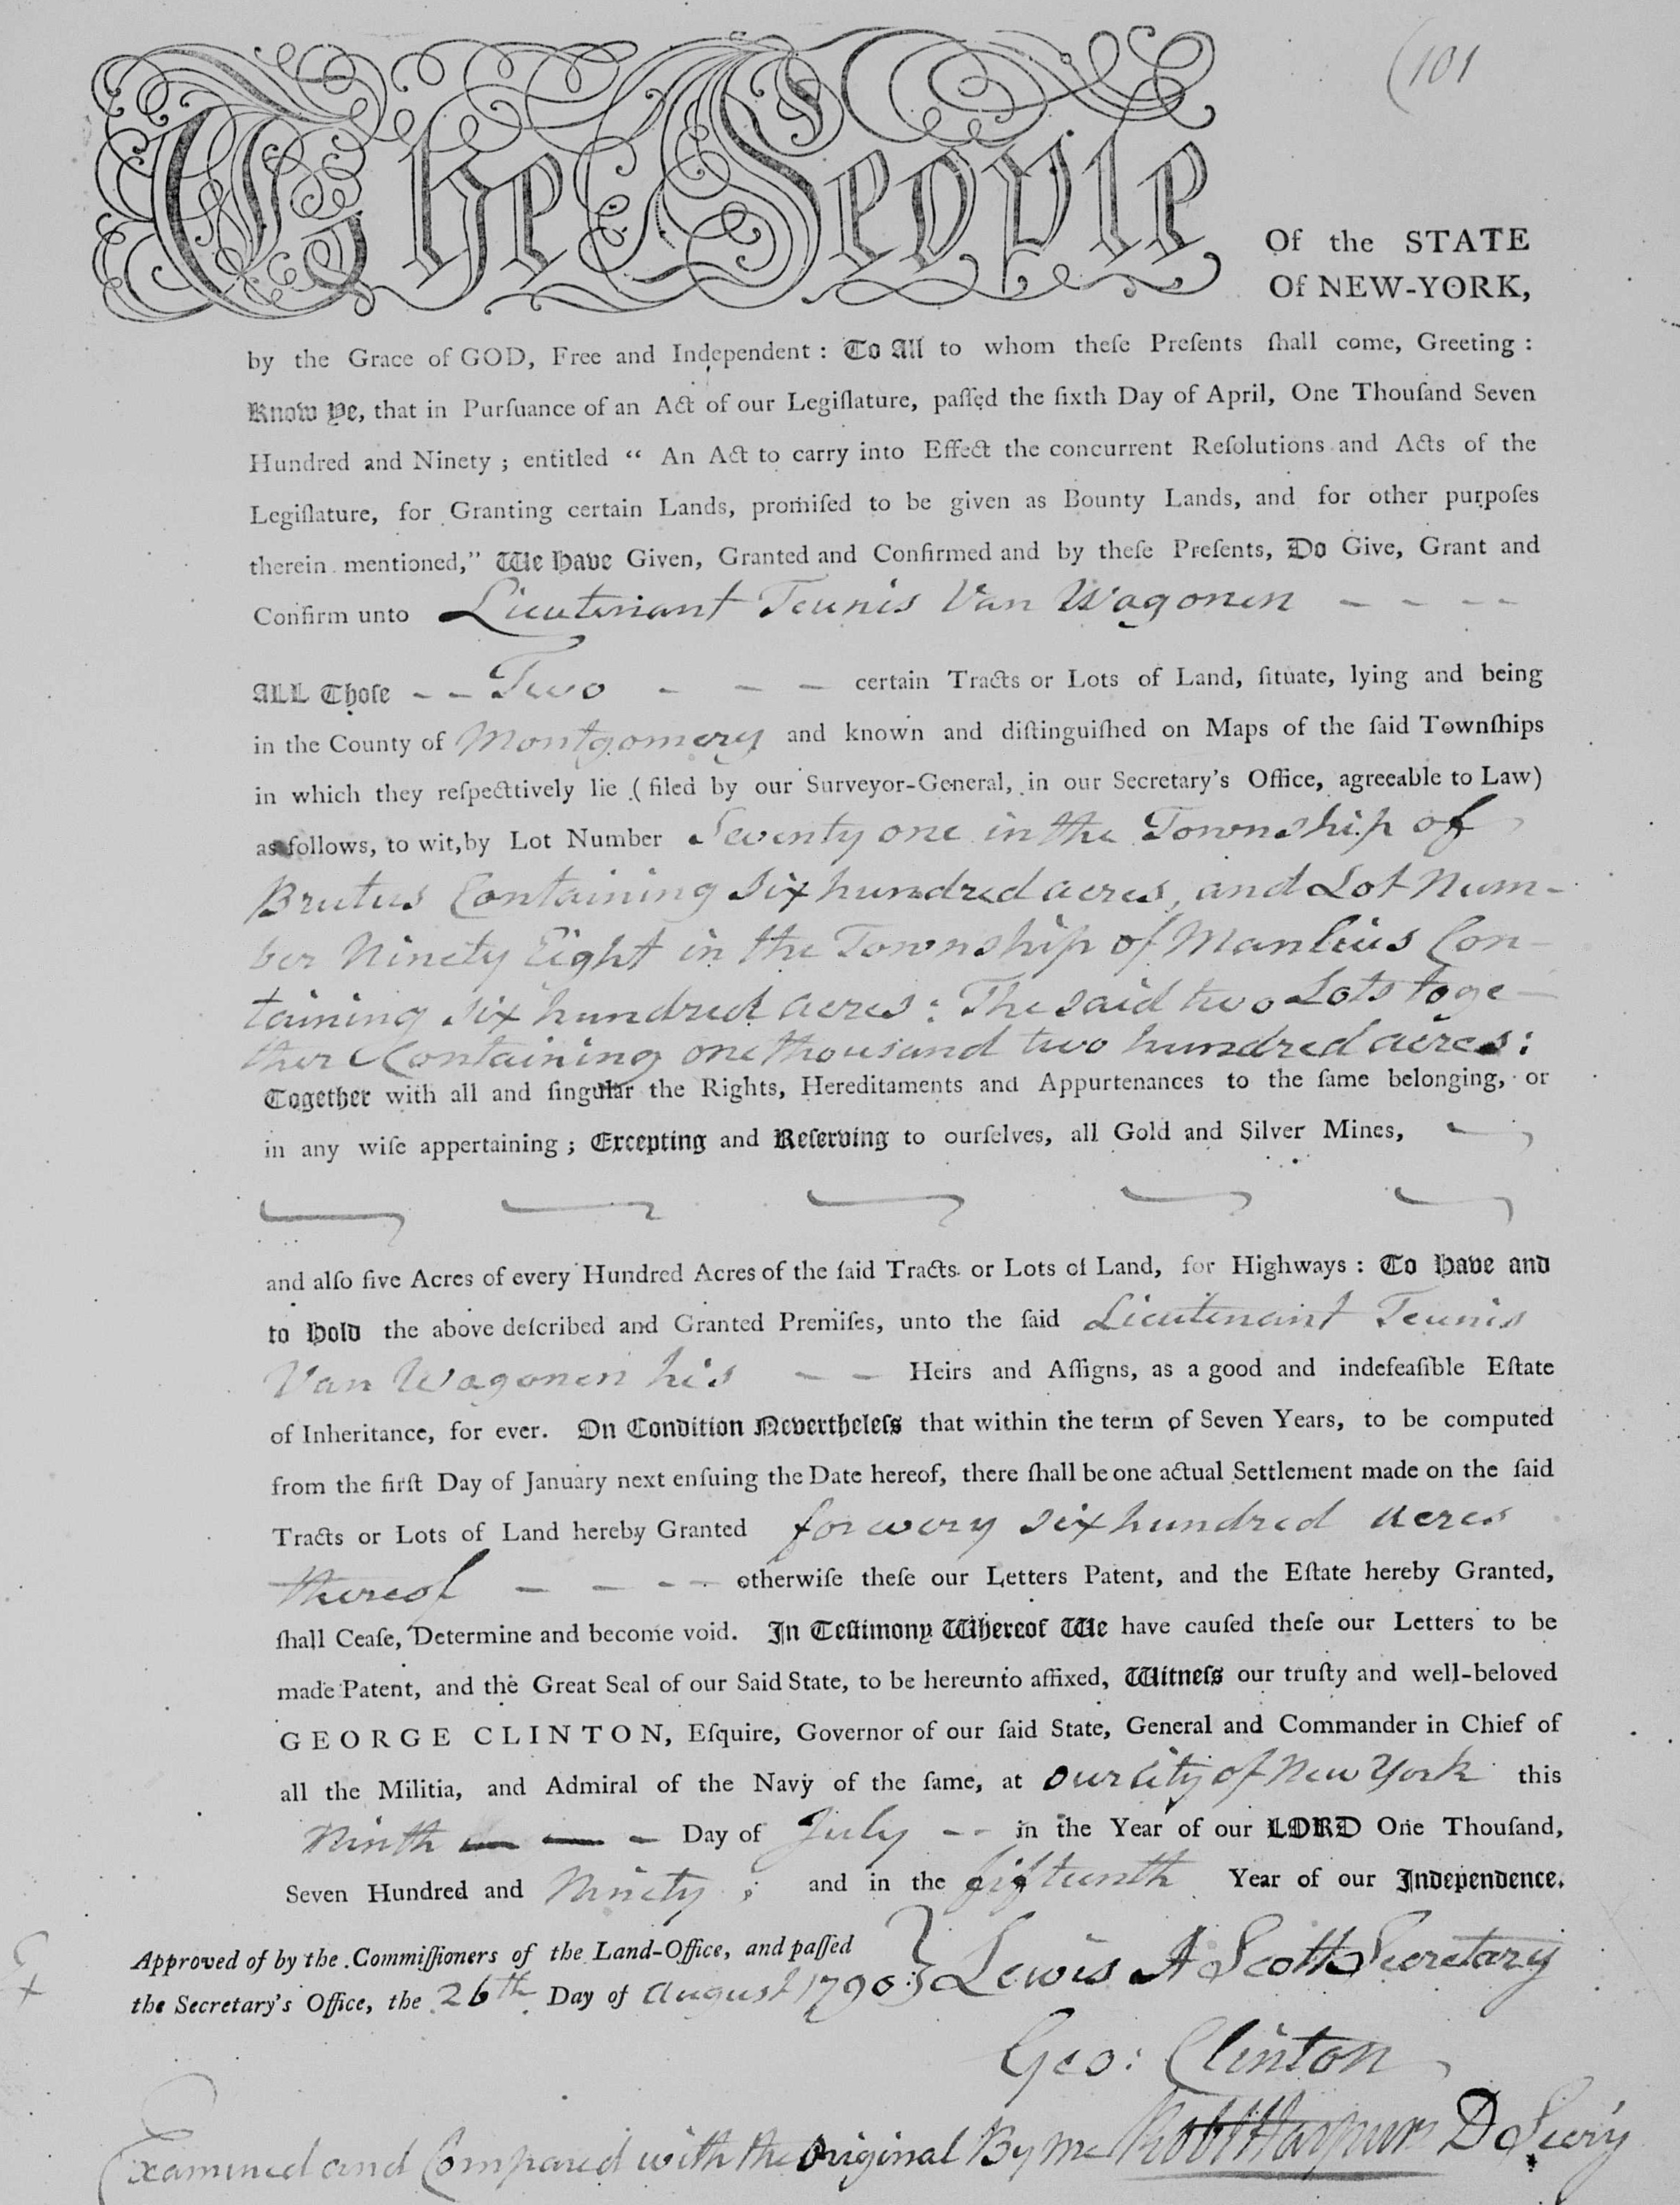 (101
The People
Of the STATE
Of NEW-YORK,
by the Grace of GOD, Free and Independent : To All to whom theſe Preſents ſhall come, Greeting :
Know Ye, that in Purſuance of an Act of our Legiſlature, paſſed the ſixth Day of April, One Thouſand Seven
Hundred and Ninety ; entitled “ An Act to carry into Effect the concurrent Reſolutions and Acts of the
Legiſlature, for Granting certain Lands, promiſed to be given as Bounty Lands, and for other purpoſes
therein mentioned,” We Have Given, Granted and Confirmed and by theſe Preſents, Do Give, Grant and
Confirm unto Lieutenant Teunis Van Wagonen - - - -
ALL Thoſe - - Two - - - certain Tracts or Lots of Land, ſituate, lying and being
in the County of Montgomery and known and diſtinguiſhed on Maps of the ſaid Townſhips
in which they reſpecttively lie ( filed by our Surveyor-General, in our Secretary's Office, agreeable to Law)
as follows, to wit, by Lot Number Seventy one in the Township of
Brutus Containing Six hundred acres, and Lot Num-
ber Ninety Eight in the Township of Manlius Con-
taining six hundred acres : The said two Lots toge-
ther Containing one thousand two hundred acres :
Together with all and ſingular the Rights, Hereditaments and Appurtenances to the ſame belonging, or
in any wiſe appertaining ; Excepting and Reſerving to ourſelves, all Gold and Silver Mines,
and alſo five Acres of every Hundred Acres of the ſaid Tracts or Lots of Land, for Highways : To Have and
to Hold the above deſcribed and Granted Premiſes, unto the ſaid Lieutenant Teunis
Van Wagonen his - - Heirs and Aſſigns, as a good and indefeaſible Eſtate
of Inheritance, for ever. On Condition Nevertheleſs that within the term of Seven Years, to be computed
from the firſt Day of January next enſuing the Date hereof, there ſhall be one actual Settlement made on the ſaid
Tracts or Lots of Land hereby Granted for every six hundred acres
thereof - - - - otherwiſe theſe our Letters Patent, and the Eſtate hereby Granted,
ſhall Ceaſe, Determine and become void. In Teſtimony Whereof We have cauſed theſe our Letters to be
made Patent, and the Great Seal of our Said State, to be hereunto affixed, Witneſs our truſty and well-beloved
GEORGE CLINTON, Eſquire, Governor of our ſaid State, General and Commander in Chief of
all the Militia, and Admiral of the Navy of the ſame, at our City of New York this
Ninth - - - Day of July - - in the Year of our LORD One Thouſand,
Seven Hundred and Ninety ; and in the fifteenth Year of our Independence.
Approved of by the Commiſſioners of the Land-Office, and paſſed
the Secretary's Office, the 26th Day of August 1790 :} Lewis A Scott Secretary
Geo: Clinton
Examined and Compared with the Original By me Robt Harpur D Secry